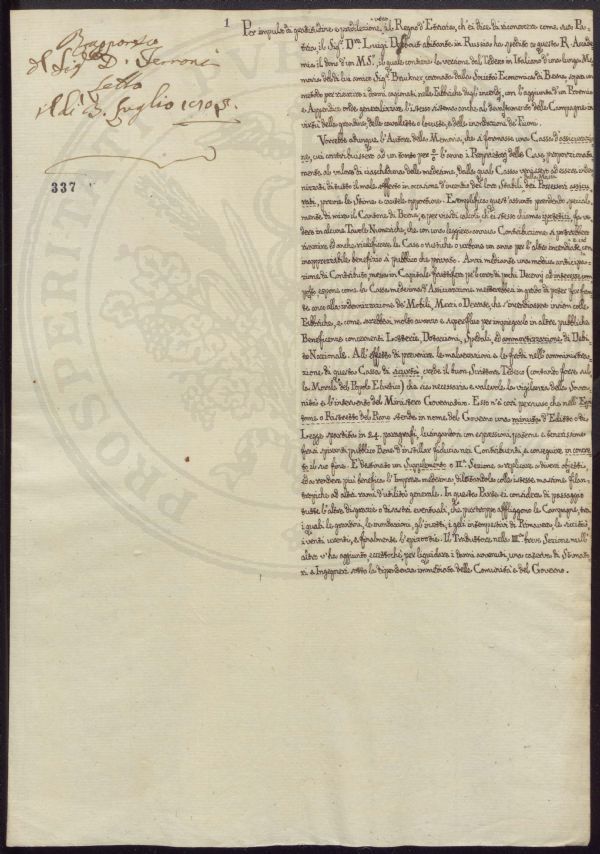 1
Rapporto
del Sig. D. Ferroni
letto
il dì 3. Luglio 1805.
337
Per impulso di gratitudine e predilezione verso il Regno d'Etruria, ch'ei dice di riconoscere come sua Pa-
tria, il Sig. Dre. Luigi abitante in Russia ha spedito a questa R. Accade-
mia il dono d'un MS. il quale contiene la versione dal Tedesco in Italiano d'una lunga Me-
moria del di lui amico Sig. Bruckner, coronata dalla Società Economica di Berna, sopra un
metodo per riparare i danni cagionati nelle Fabbriche dagl'incendj, con l'aggiunta d'un Proemio
e Appendice onde generalizzare l'istesso sistema anche al della Campagna in-
vasa dalla grandine, dalle cavallette o locuste, e dalle inondazioni de' Fiumi.
Vorrebbe adunque l'Autore della Memoria, che si formasse una Cassa d'assicurazio-
ne, cui contribuissero ad un tanto per l'anno i Proprietarj delle Case, proporzionata-
mente al valore di ciascheduna delle medesime, dalla qual Cassa venissero ad essere inden-
nizzati di tutto il male sofferto in occasione d'incendio dei loro Stabili i Possessori assicu-
rati, previe le Stime e cautele opportune. Esemplifica quest'assunto prendendo special-
mente di mira il Cantone di Berna, e per via di calcoli, ch'ei stesso chiama ipotetici, fa ve-
dere in alcune Tavole Numeriche, che con una leggiera annua Contribuzione si potrebbero
risarcire ed anche riedificare le Case rustiche o urbane un anno per l'altro incendiate, con
inapprezzabile benefizio sì pubblico che privato. Anzi mediante una modica anticipa-
zione di Contributo, messa in Capitale fruttifero pel corso di pochi Decennj ad interesse com-
posto, espone come la Cassa medesima d'Assicurazione metterebbesi in grado di poter far fron-
te anco alla indennizzazione de' Mobili, Merci o Derrate, che s'incendiassero insiem colle
Fabbriche, e come sarebbevi molto avanzo e superfluo per impiegarlo in altre pubbliche
Beneficenze concernenti Lotterie, Dotazioni, Spedali, ed ammortizzazione di Debi-
to Nazionale. All'effetto di prevenire le malversazioni e le frodi nell'amministra-
zione di questa Cassa di sicurtà, crede il buon Scrittore Tedesco (contando forse sul-
la Morale del Popolo Elvetico) che sia necessaria e valevole la vigilanza della Sovra-
nità e l'intervento del Ministero Governativo. Esso n'è così persuaso che nell'Epi-
tome o Ristretto del Piano stende in nome del Governo una minuta d'Editto o di
Legge spartita in 24. paragrafi, lusingandosi con espressioni patene e tenerissime
forsi spiranti pubblico Bene d'instillar fiducia nei Contribuenti, e conseguire in concre-
to il suo fine. È destinato un Supplemento o IIa. Sezione a replicare a diversi obietti,
ed a rendere più benefica l'Impresa medesima dilatandola colle istesse massime filan-
tropiche ad altri rami d'utilità generale. In questa Parte si considera di passaggio
tutte l'altre disgrazie o disastri eventuali, che purtroppo affliggono le Campagne, tra
i quali le grandini, le inondazioni, gl'insetti, i geli intempestivi di Primavera, le siccità,
i venti urenti, e finalmente l'epizootie. Il Traduttore nella IIIa. breve Sezione null'
altro v'ha aggiunto eccettochè, per liquidare i danni avvenuti, una caserva di Stimato-
ri e Ingegneri sotto la dipendenza immediata delle Comunità e del Governo.